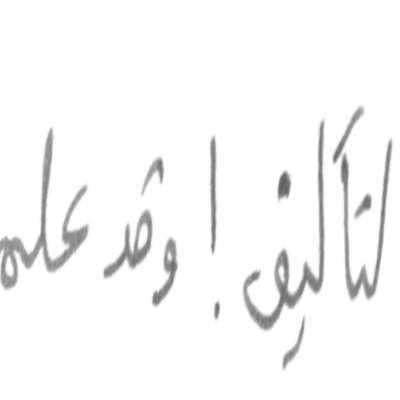 لتأليف! وقد علم